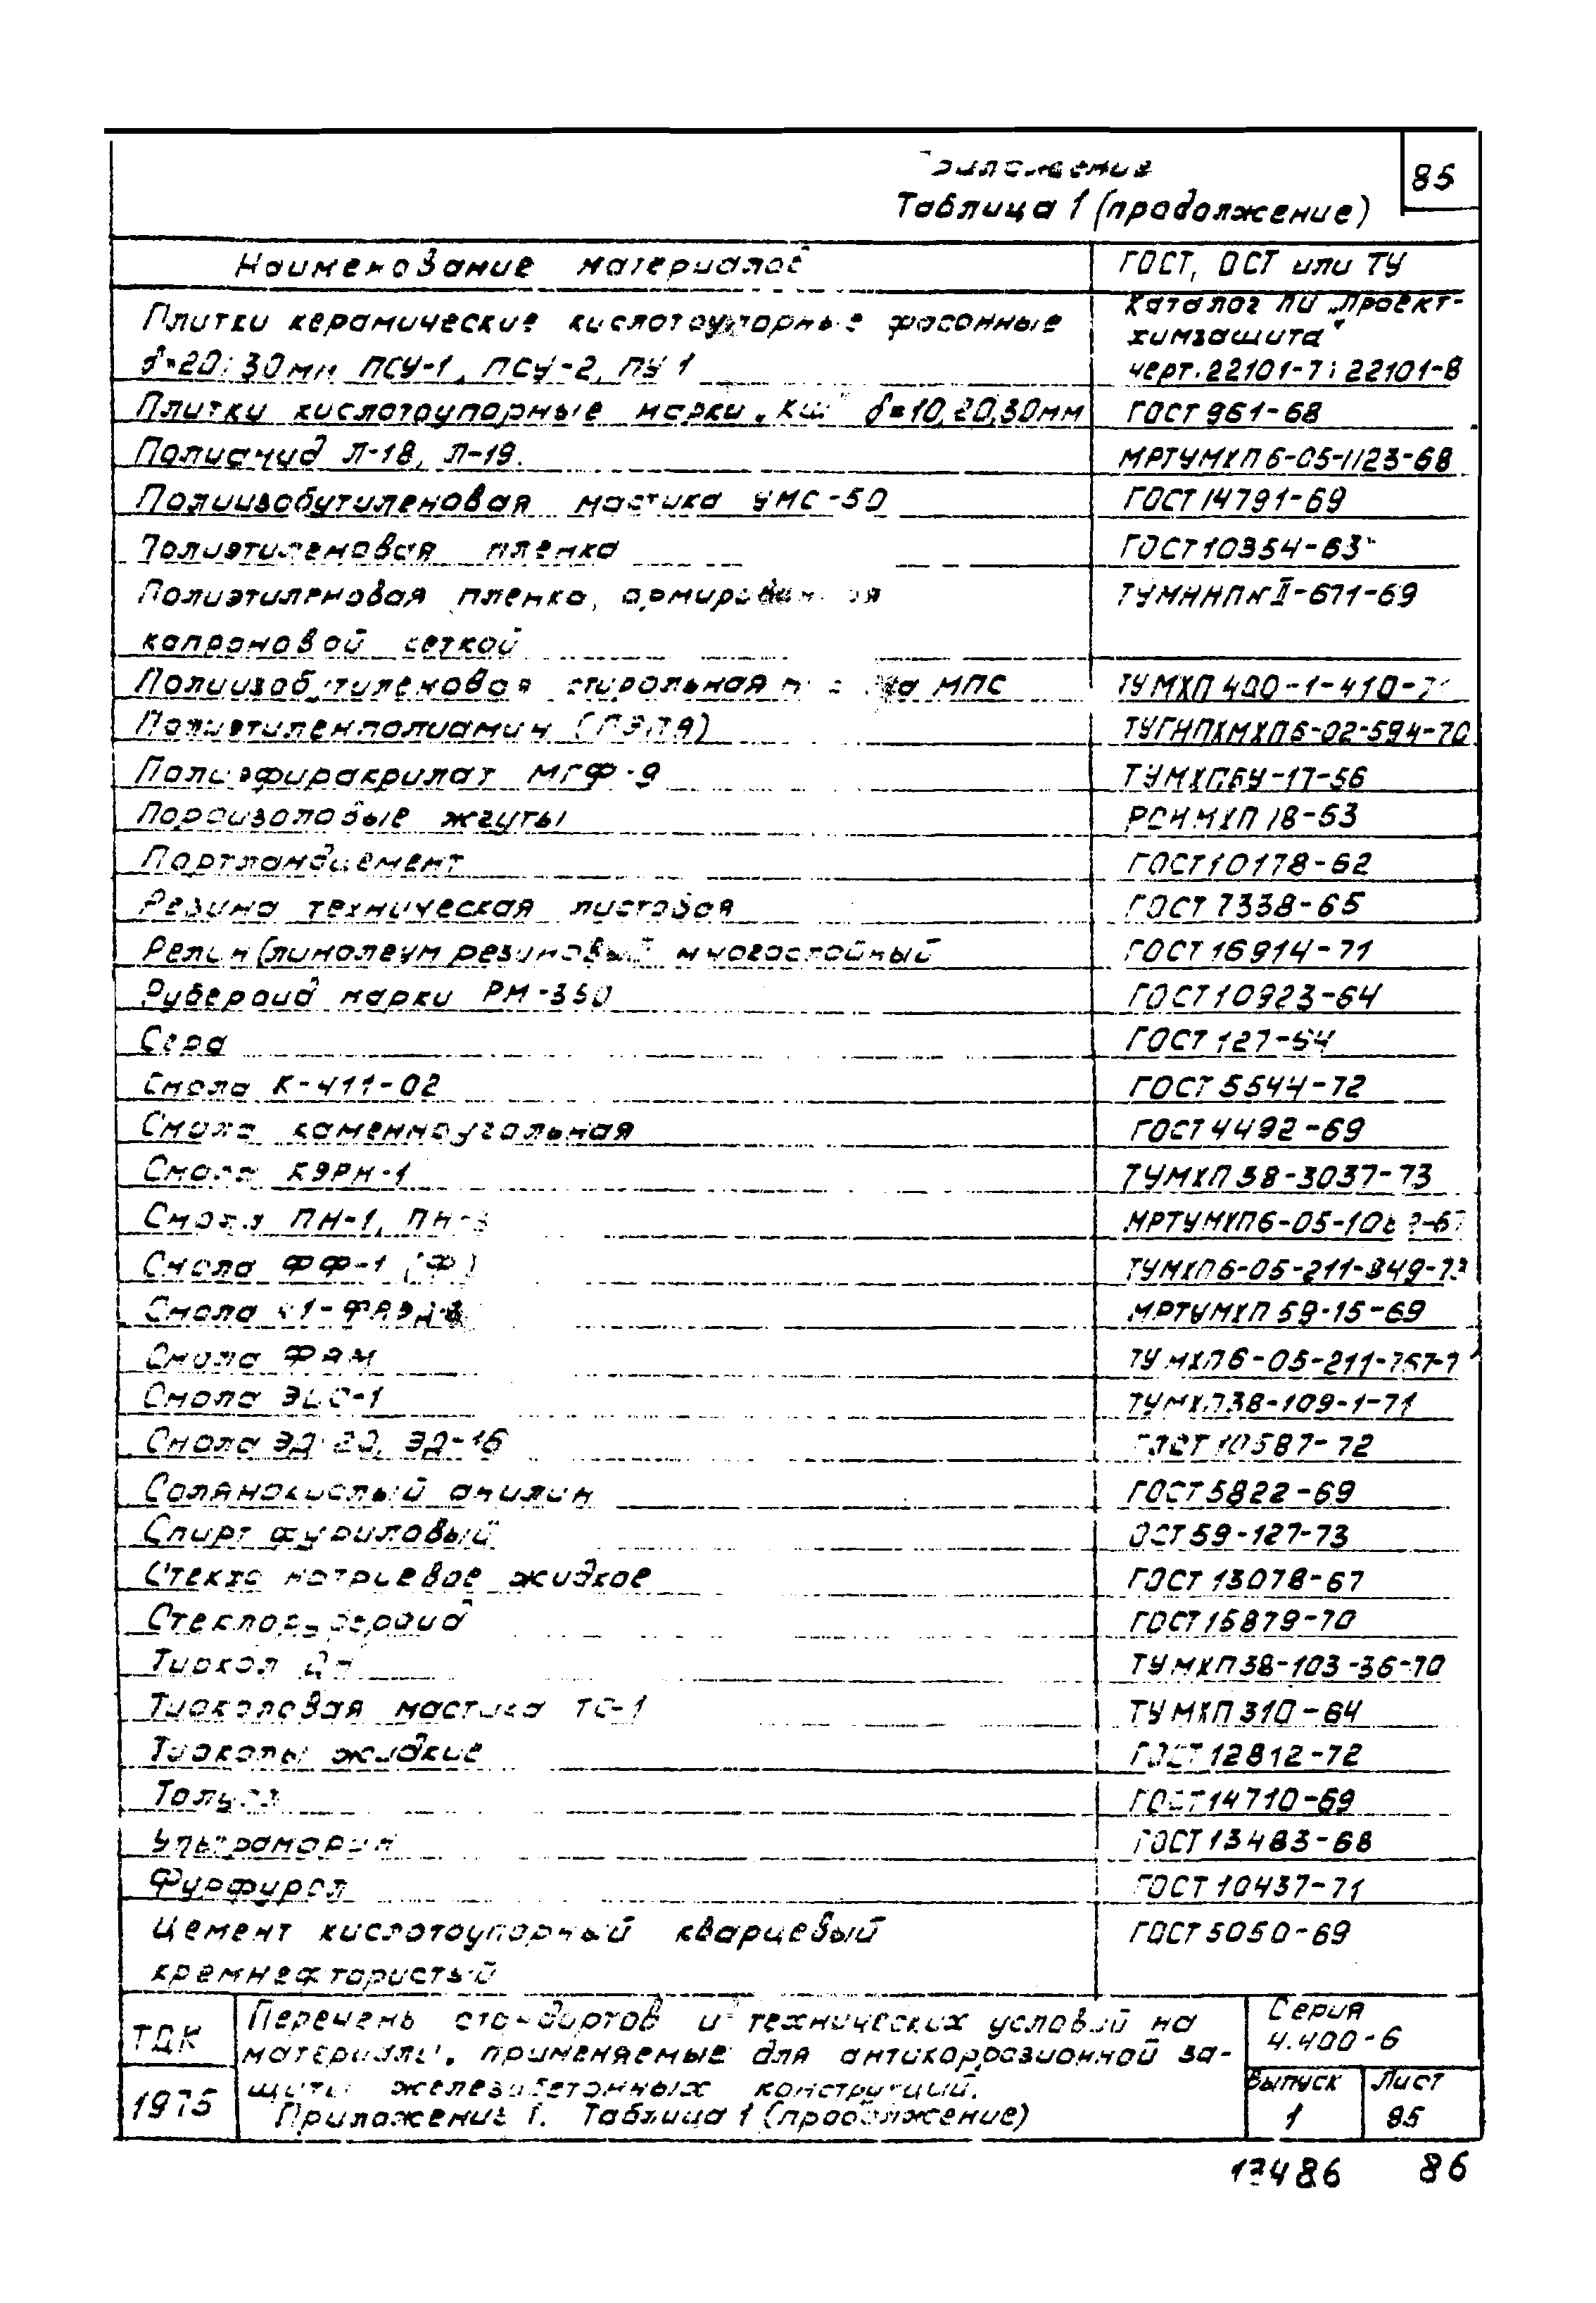 85
Таблица 1 (продолжение)
Наименование материалов ГОСТ, ОСТ или ТУ
Плитки керамические кислотоупорные фасонные Каталог ПИ „Проект-
химзащита"
δ=20; 30мм ПСУ-1, ПСУ-2, ПУ 1 черт. 22101-7; 22101-8
Плитки кислотоупорные марки „КШ" δ=10,20,30мм ГОСТ 961-68
Полиамид Л-18, Л-19. МРТУМХП 6-05-1123-68
Полиизобутиленовая мастика УМС-50 ГОСТ 14791-69
Полиэтиленовая пленка ГОСТ 10354-63
Полиэтиленовая пленка, армированная
капроновой сеткой
Полиизобутиленовая стирольная МПС ТУМХП 400-1-410-
Полиэтиленполиамин (ПЭПА) ТУГНПХМХП6-02-594-70
Полиэфиракрилат МГФ-9 ТУМХПБУ-17-56
Пороизоловые жгуты МХП 18-63
Портландцемент ГОСТ 10178-62
Резина техническая листовая ГОСТ 7338-65
Релин (линолеум резиновый многослойный ГОСТ 16914-71
Рубероид марки РМ-350 ГОСТ 10923-64
Сера ГОСТ 127-64
Смола К-411-02 ГОСТ 5544-72
Смола каменноугольная ГОСТ 4492-69
Смола КЭРН-1 ТУМХП 38-3037-73
Смола ПН-1, ПН-3 МРТУМХП6-05-
Смола ФФ-1 (Ф) ТУМХП6-05-211-849-73
Смола МРТУМХП 59-15-69
Смола ФАМ ТУМХП6-05-211-
Смола ЭИС-1 ТУМХП38-109-1-71
Смола ЭД-20, ЭД-16 ГОСТ 10587-72
Солянокислый анилин ГОСТ 5822-69
Спирт фуриловый ОСТ 59-127-73
Стекло натриевое жидкое ГОСТ 13078-67
Стеклорубероид ГОСТ 15879-70
Тиокол ТУМХП38-103-36-70
Тиоколовая мастика ТС-1 ТУМХП 310-64
Тиоколы жидкие ГОСТ 12812-72
Толуол ГОСТ 14710-69
Ультрамарин ГОСТ 13483-68
Фурфурол ГОСТ 10437-71
Цемент кислотоупорный кварцевый ГОСТ 5050-69
кремнефтористый
ТДК Перечень стандартов и технических условий на Серия
материалы, применяемые для антикоррозионной за- 4.400-6
1975 щиты железобетонных конструкций. Выпуск Лист
Приложение 1. Таблица 1 (продолжение) 1 85
13486 86